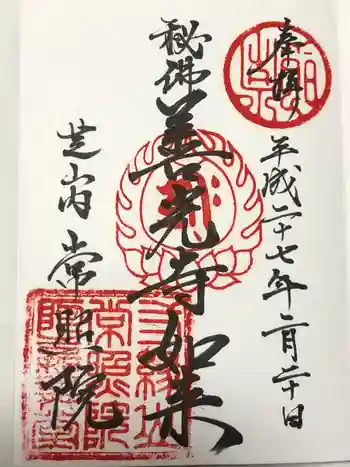 奉拝
平成二十七年二月二十日
秘佛善光寺如来
芝山内 常照院